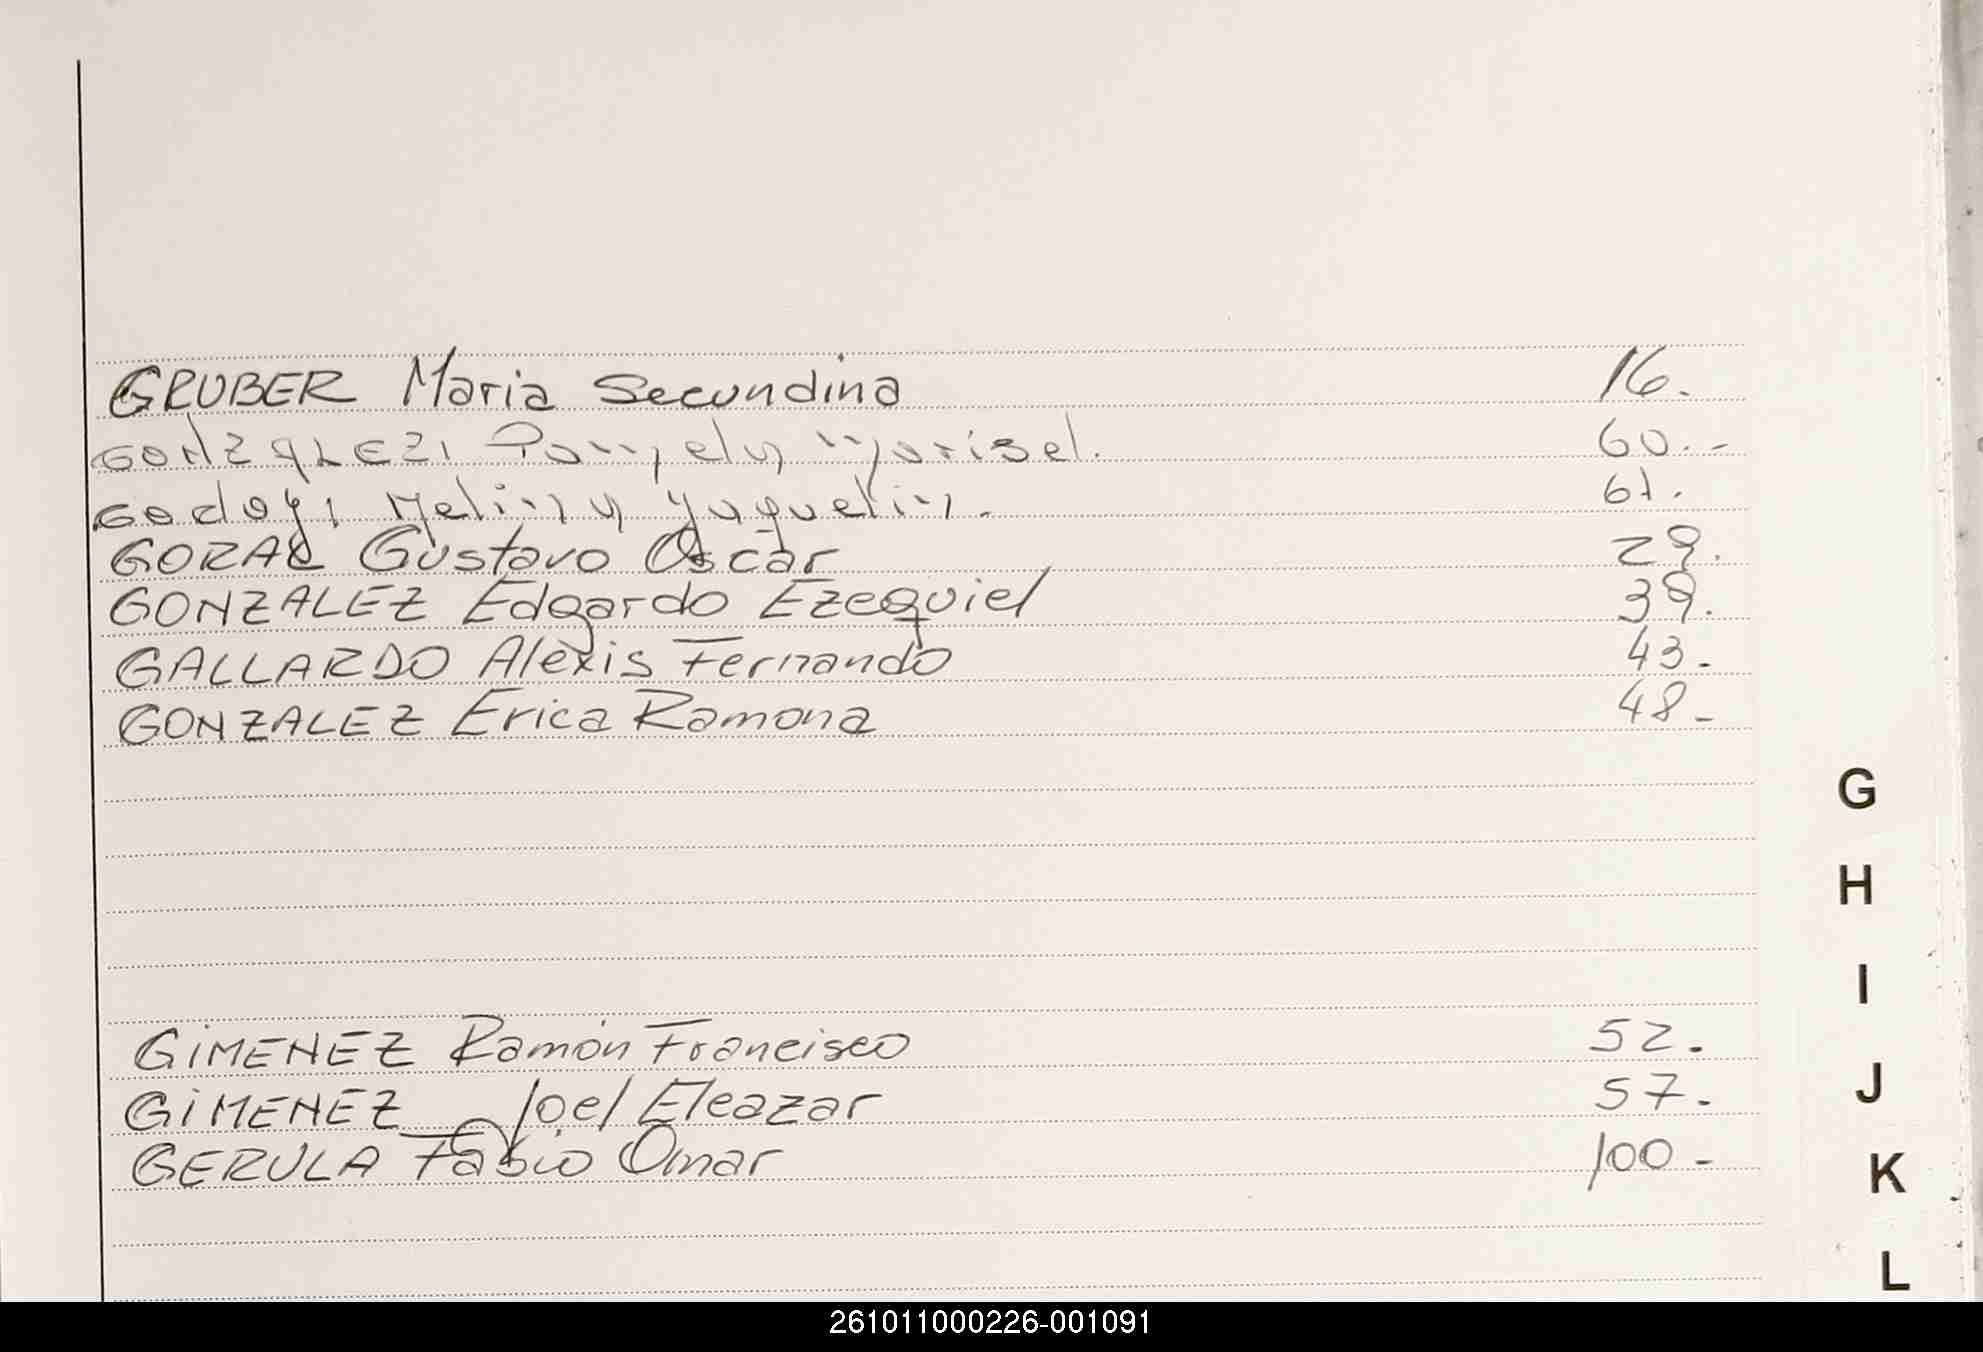 GRUBER Maria Secundina 16.
GONZALEZ, Pamela Marisel. 60.-
Godoy, Melina Yaquelin. 61.
GORAL Gustavo Oscar 29.
GONZALEZ Edgardo Ezequiel 39.
GALLARDO Alexis Fernando 43.-
GONZALEZ Erica Ramona 48-
G
H
I
GIMENEZ Ramón Francisco 52.
GIMENEZ Joel Eleazar 57.
J
GERULA Fabio Omar 100-
K
L
261011000226-001091